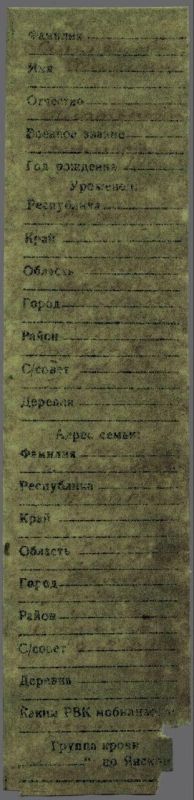 Фамилия
Имя
Отчество
Военное звание
Год рождения
Уроженец:
Республика
Край
Область
Город
Район
С/совет
Деревня
Адрес семьи:
Фамилия
Республика
Край
Область
Город
Район
С/совет
Деревня
Каким РВК мобилизован
Группа крови
" по Янском